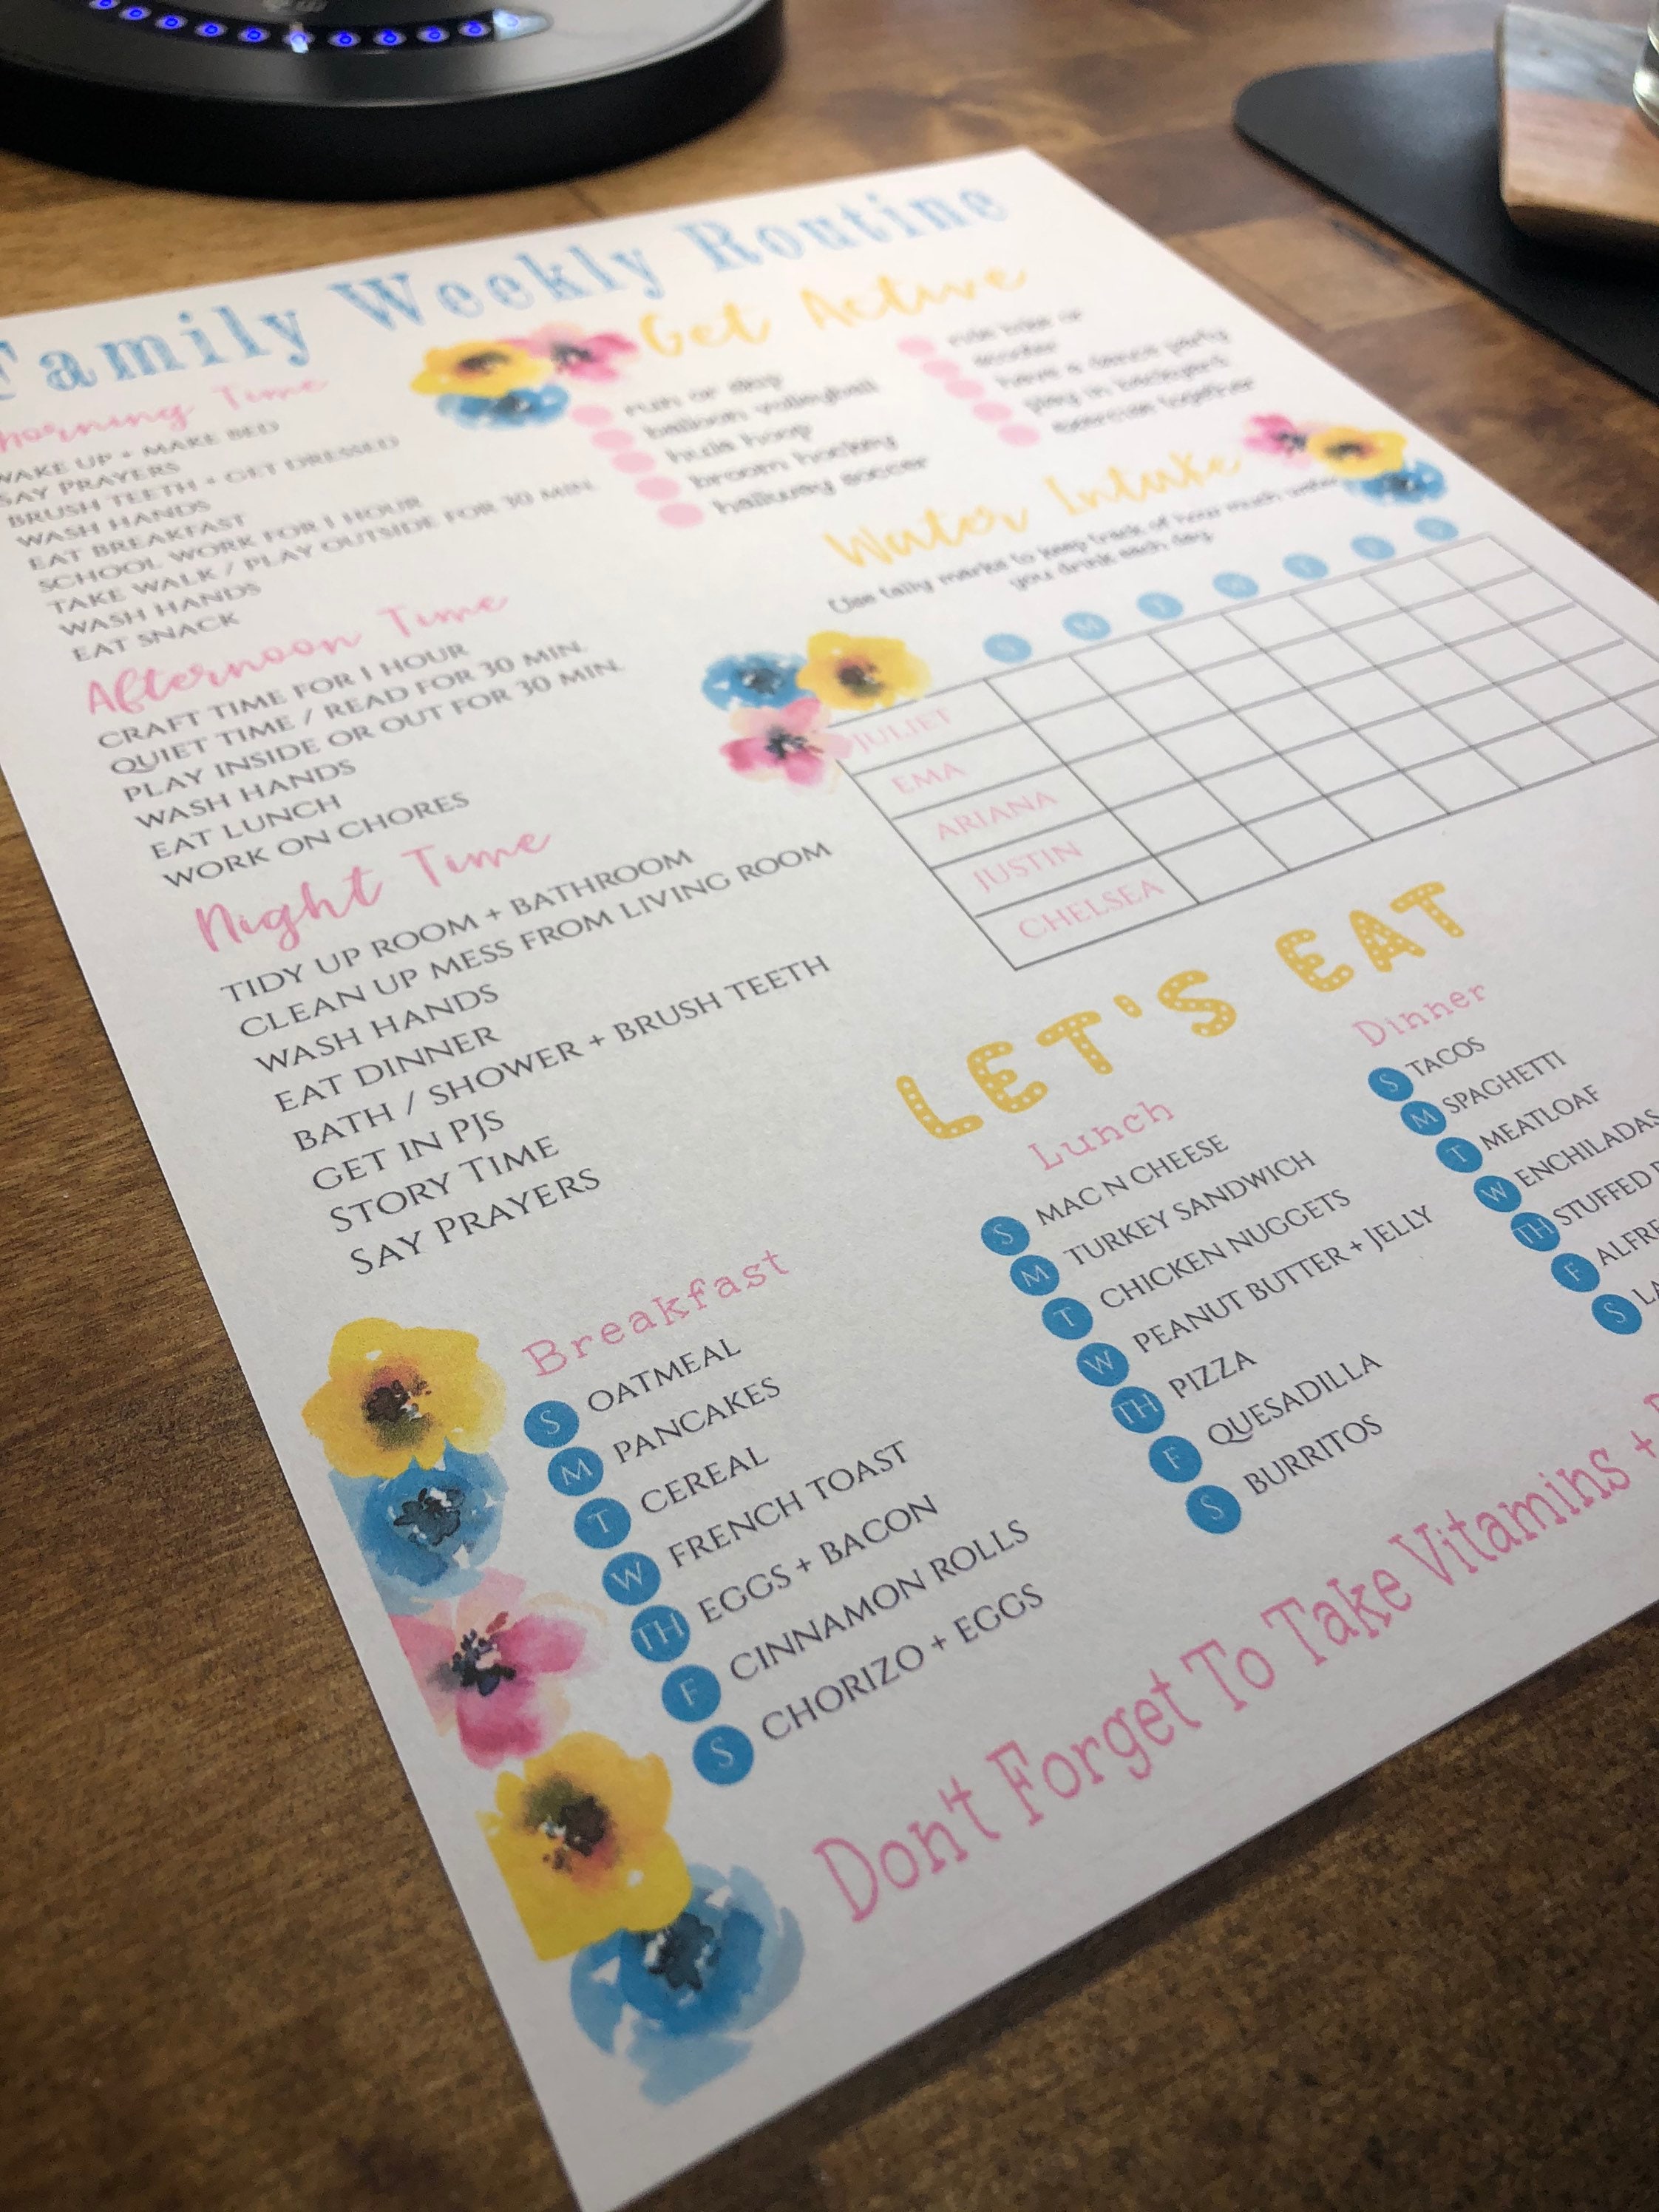 Family Weekly Routine
Morning Time
WAKE UP + MAKE BED
SAY PRAYERS
BRUSH TEETH + GET DRESSED
WASH HANDS
EAT BREAKFAST
SCHOOL WORK FOR 1 HOUR
TAKE WALK / PLAY OUTSIDE FOR 30 MIN.
WASH HANDS
EAT SNACK
Afternoon Time
CRAFT TIME FOR 1 HOUR
QUIET TIME / READ FOR 30 MIN.
PLAY INSIDE OR OUT FOR 30 MIN.
WASH HANDS
EAT LUNCH
WORK ON CHORES
Night Time
TIDY UP ROOM + BATHROOM
CLEAN UP MESS FROM LIVING ROOM
WASH HANDS
EAT DINNER
BATH / SHOWER + BRUSH TEETH
GET IN PJS
STORY TIME
SAY PRAYERS
Get Active
run or skip
balloon volleyball
hula hoop
broom hockey
hallway soccer
ride bike or
scooter
have a dance party
play in backyard
exercise together
Water Intake
Use tally marks to keep track of how much water
you drink each day.
S M T W T F S
JULIET
EMA
ARIANA
JUSTIN
CHELSEA
LET'S EAT
Breakfast
S OATMEAL
M PANCAKES
T CEREAL
W FRENCH TOAST
TH EGGS + BACON
F CINNAMON ROLLS
S CHORIZO + EGGS
Lunch
S MAC N CHEESE
M TURKEY SANDWICH
T CHICKEN NUGGETS
W PEANUT BUTTER + JELLY
TH PIZZA
F QUESADILLA
S BURRITOS
Dinner
S TACOS
M SPAGHETTI
T MEATLOAF
W ENCHILADAS
TH STUFFED
F ALFRE
S LA
Don't Forget To Take Vitamins +